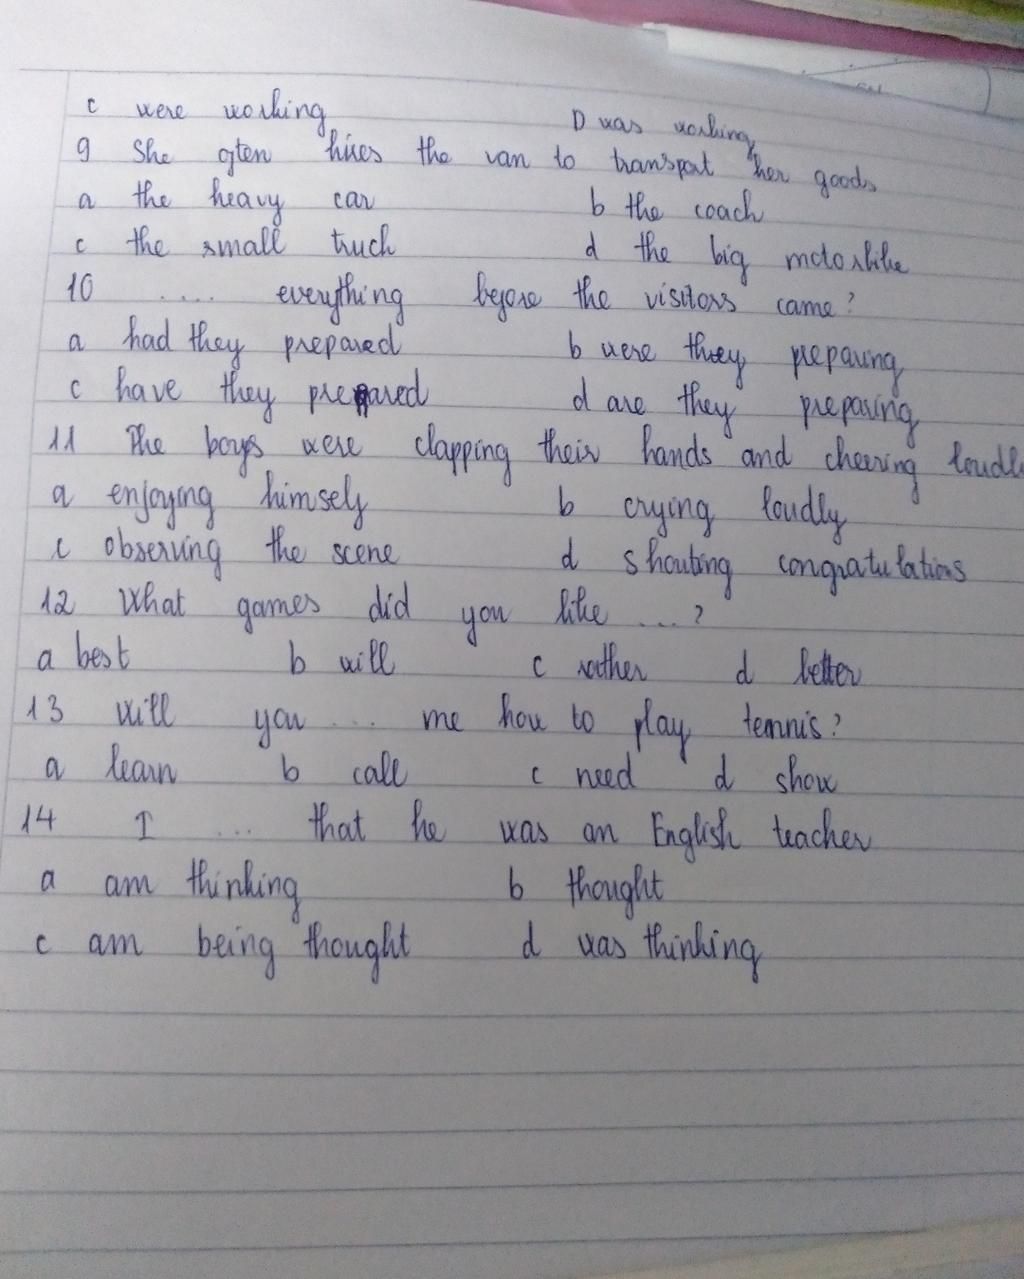 c were working D was working
9 She often hires the van to transport her goods
a the heavy car b the coach
c the small truck d the big motorbike
10 .... everything before the visitors came?
a had they prepared b were they preparing
c have they prepared d are they preparing
11 The boys were clapping their hands and cheering loudl
a enjoying himself b crying loudly
c observing the scene d shouting congratulations
12 What games did you like ....?
a best b will c rather d better
13 Will you ... me how to play tennis?
a learn b call c need d show
14 I ... that he was an English teacher
a am thinking b thought
c am being thought d was thinking